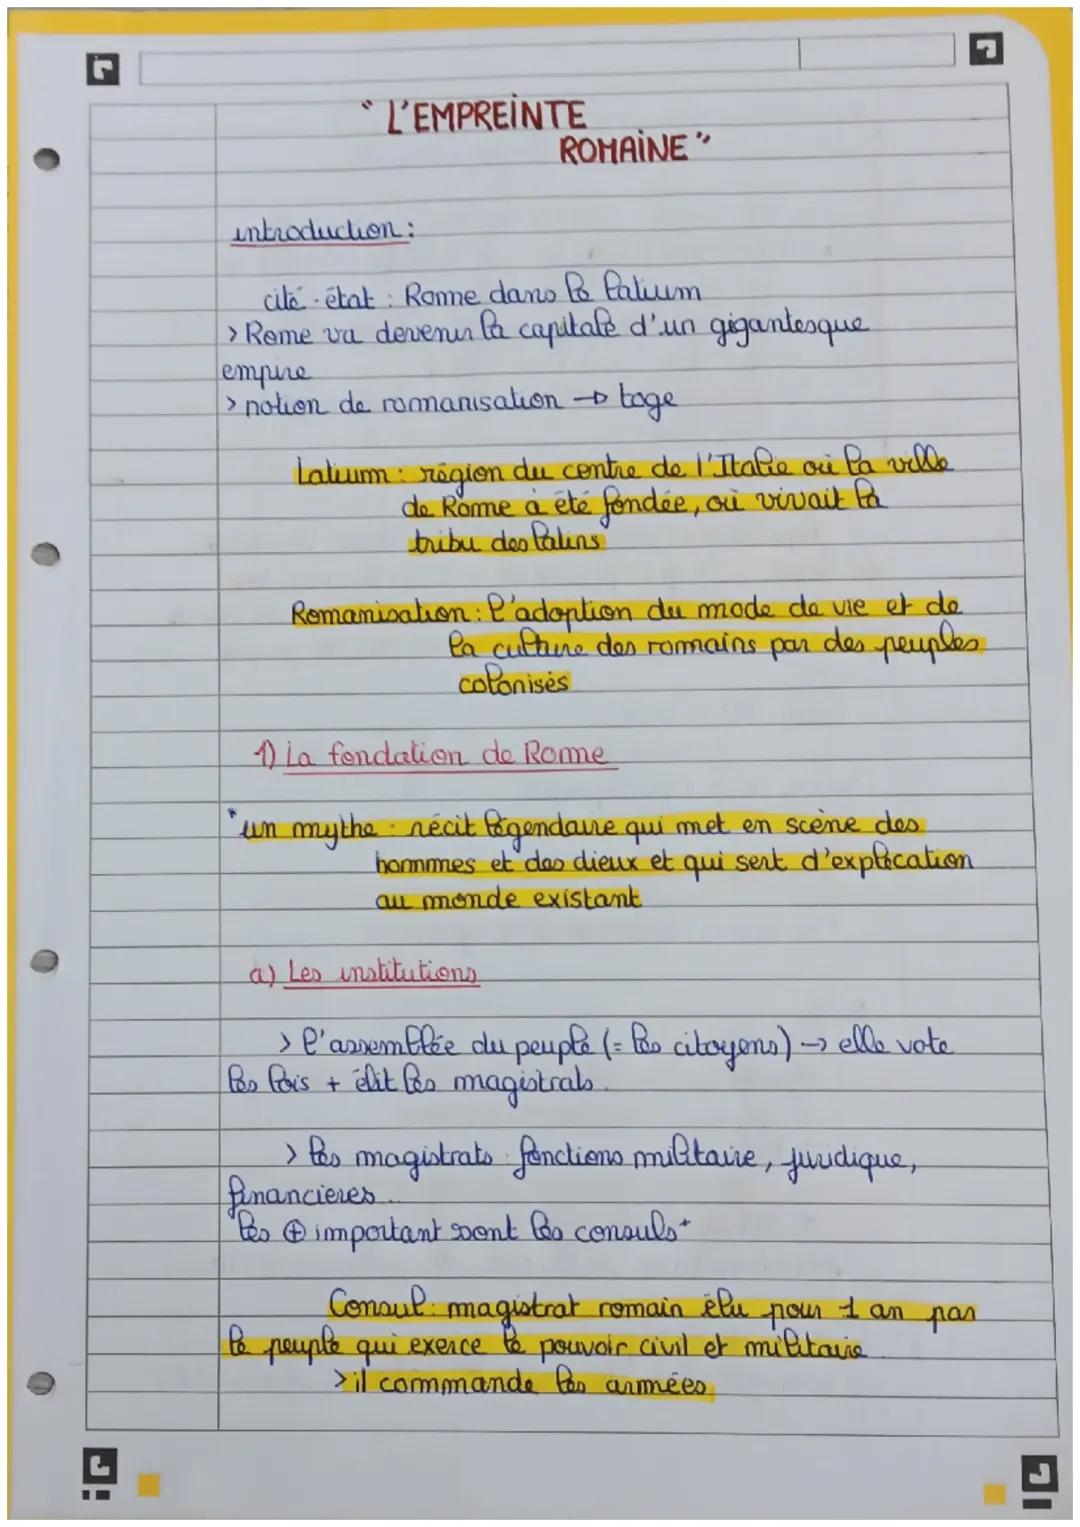 "L'EMPREINTE
ROMAINE"
introduction :
cité-état : Rome dans le Latium
> Rome va devenir la capitale d'un gigantesque
empire
> notion de romanisation → toge
Latium : région du centre de l'Italie où la ville
de Rome a été fondée, où vivait la
tribu des latins
Romanisation : l'adoption du mode de vie et de
la culture des romains par des peuples
colonisés
1) La fondation de Rome
*un mythe : récit légendaire qui met en scène des
hommes et des dieux et qui sert d'explication
au monde existant
a) Les institutions
> l'assemblée du peuple (= les citoyens) → elle vote
les lois + élit les magistrats.
> les magistrats : fonctions militaire, juridique,
financieres...
les ⊕ important sont les consuls*
Consul : magistrat romain élu pour 1 an par
le peuple qui exerce le pouvoir civil et militaire
> il commande les armées